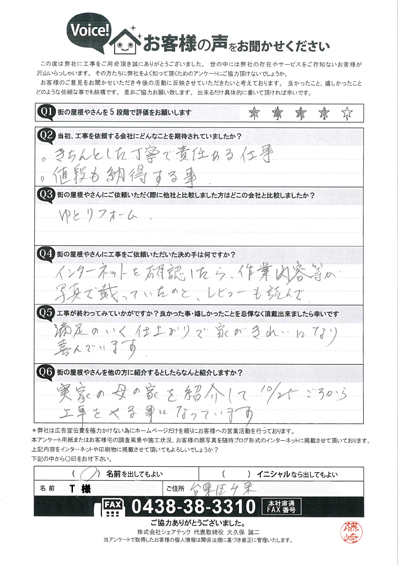 Voice!
お客様の声をお聞かせください
この度は弊社に工事をご用命頂き誠にありがとうございました。世の中には弊社の存在やサービスをご存知ないお客様が
沢山いらっしゃいます。その方たちに弊社をよく知って頂くためのアンケートにご協力頂けないでしょうか。
お客様のご意見をお聞かせいただき今後の活動に反映させていただきたいと考えております。良かったこと、嬉しかったこと
どのような些細な事でも結構です。是非ご協力お願い致します。出来るだけ具体的に書いて頂ければ幸いです。
Q1 街の屋根やさんを5段階で評価をお願いします ★ ★ ★ ★ ☆
Q2 当初、工事を依頼する会社にどんなことを期待されていましたか?
。きちんとした丁寧で責任ある仕事
。値段も納得する事
Q3 街の屋根やさんにご依頼いただく際に他社と比較しました方はどこの会社と比較しましたか?
ゆとリフォーム.
Q4 街の屋根やさんに工事をご依頼いただいた決め手は何ですか?
インターネットを確認したら、作業内容等が
写真で載っていたのと、レビューも読んで.
Q5 工事が終わってみていかがですか?良かった事・嬉しかったことを忌憚なく頂戴出来ましたら幸いです
満足のいく仕上がりで家がきれいになり
喜んでいます
Q6 街の屋根やさんを他の方に紹介するとしたらなんと紹介しますか?
実家の母の家を紹介して 10/25ごろから
工事をやる事になっています
*弊社は広告宣伝費を極力かけない為にホームページだけを頼りにお客様への営業活動を行っております。
本アンケート用紙またはお客様宅の調査風景や施工状況、お客様の顔写真を随時ブログ形式のインターネットに掲載させて頂いております。
上記内容をインターネットや印刷物に掲載させて頂いてもよろしいでしょうか?
下記の中から○印をお付下さい。
(○) 名前を出してもよい ( ) イニシャルなら出してもよい
名前 T 様 ご住所 台東区
FAX 0438-38-3310 本社直通 FAX番号
ご協力ありがとうございました。
株式会社シェアテック 代表取締役 大久保 誠二
当アンケートで取得したお客様の個人情報は関係法規に基づき厳正に管理いたします。